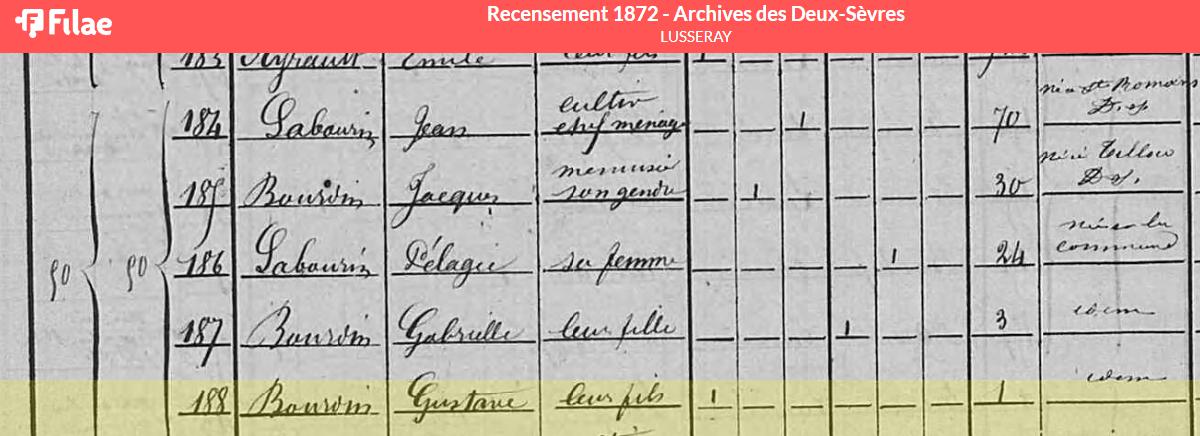 Filae
Recensement 1872 - Archives des Deux-Sèvres
LUSSERAY
183 Ayrault Emile leur fils 1
184 Labourin Jean cultivr
chef ménage 1 70 né à St Romans
D. S.
185 Bourdin Jacques menuisier
son gendre 1 30 né à
D. S.
50 50 186 Labourin Pélagie sa femme 1 24 née
commune
187 Bourdin Gabrielle leur fille 1 3 idem
188 Bourdin Gustave leur fils 1 1 idem